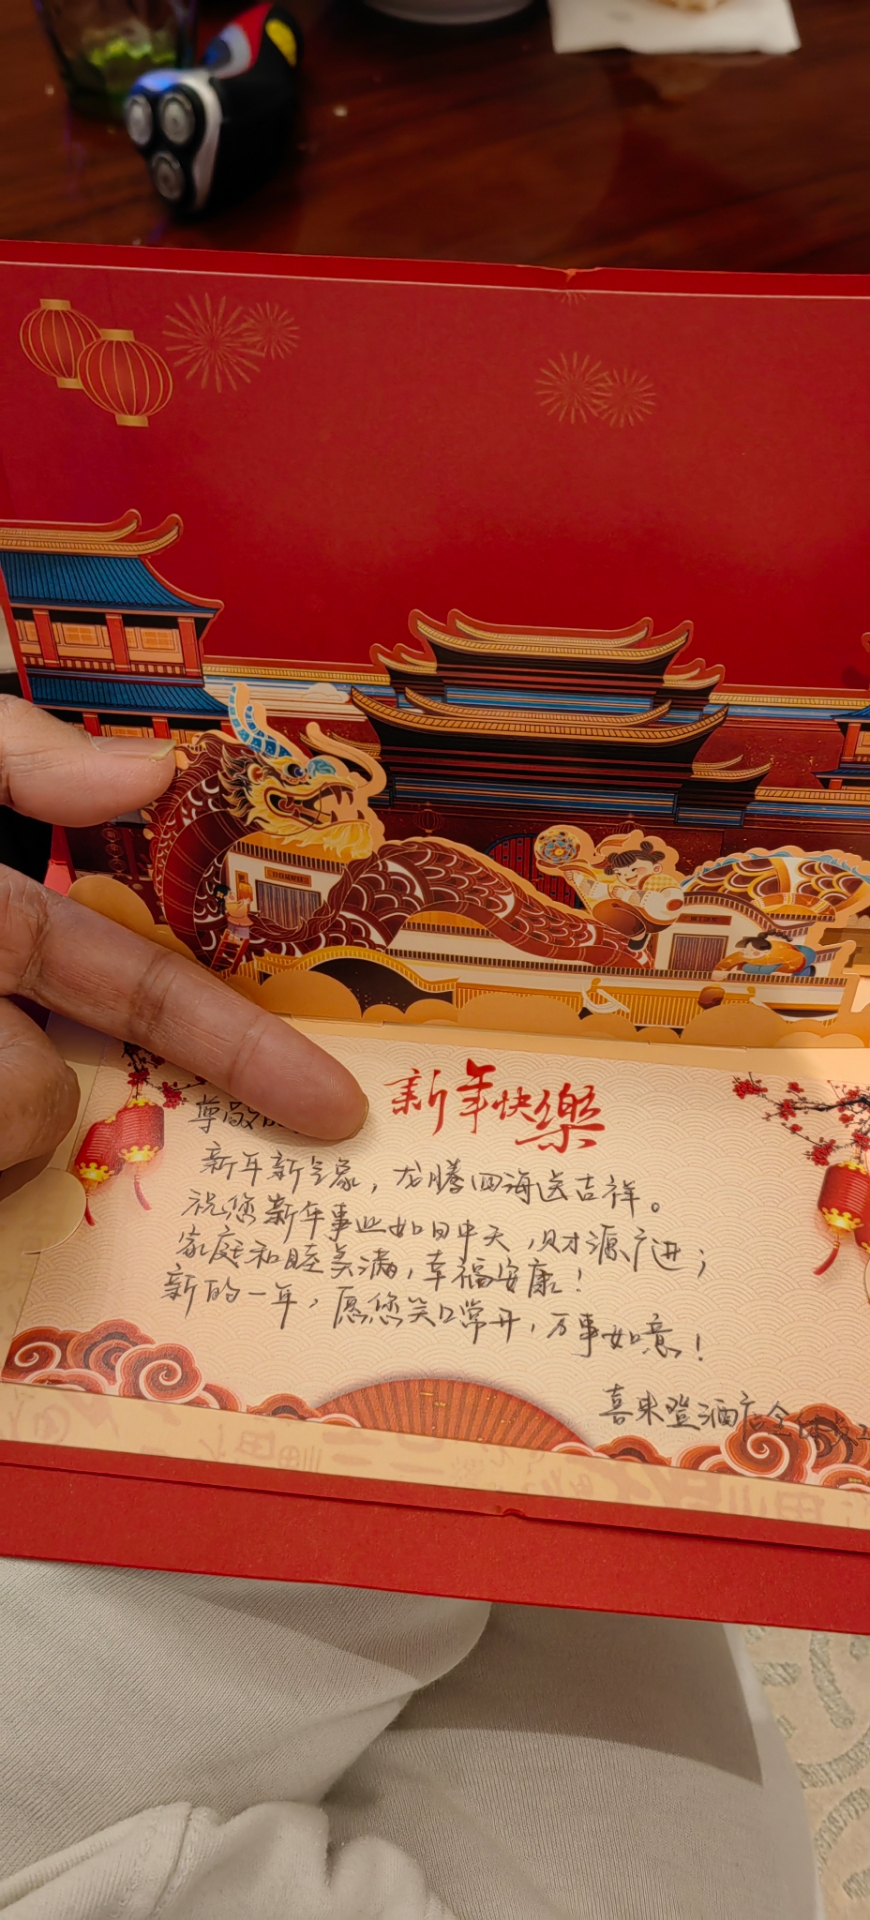 新年快樂
尊敬的
新年新气象，龙腾四海送吉祥。
祝您新年事业如日中天，财源广进；
家庭和睦美满，幸福安康！
新的一年，愿您笑口常开，万事如意！
喜来登酒店全体